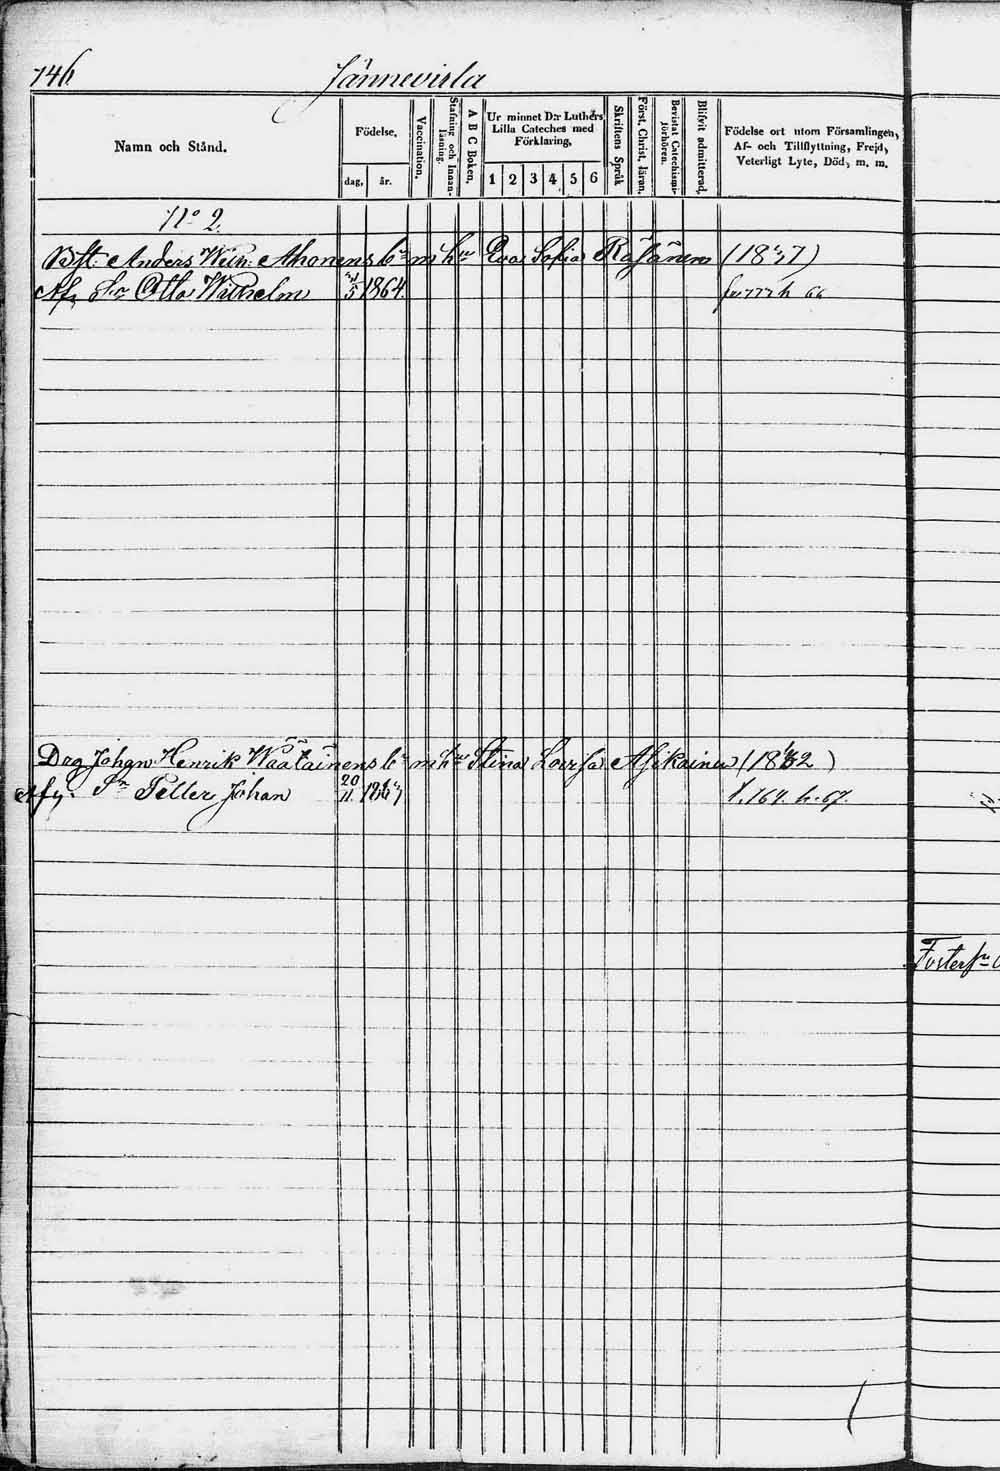 746
Jännevirta
Namn och Stånd.
Födelse,
dag, år.
Vaccination.
Stafning och Innanläsning.
A B C Boken,
Ur minnet D:r Luthers Lilla Cateches med Förklaring,
1 2 3 4 5 6
Skriftens Språk
Först. Christ. läran.
Bevistat Catechismiförhören.
Blifvit admitterad,
Födelse ort utom Församlingen,
Af- och Tillflyttning, Frejd,
Veterligt Lyte, Död, m. m.
No 2.
Anders Wilh. Ahonens bn m hu Eva Sofia Räsänen (1837)
Af. Sn Otto Wilhelm 5 1864. h 66
Drg Johan Henrik Wäätäinens bn m hu Stina Lovisa Asikainen (1832)
Afg. Sn Petter Johan 20/11 1867 h. 67.
Fosters.